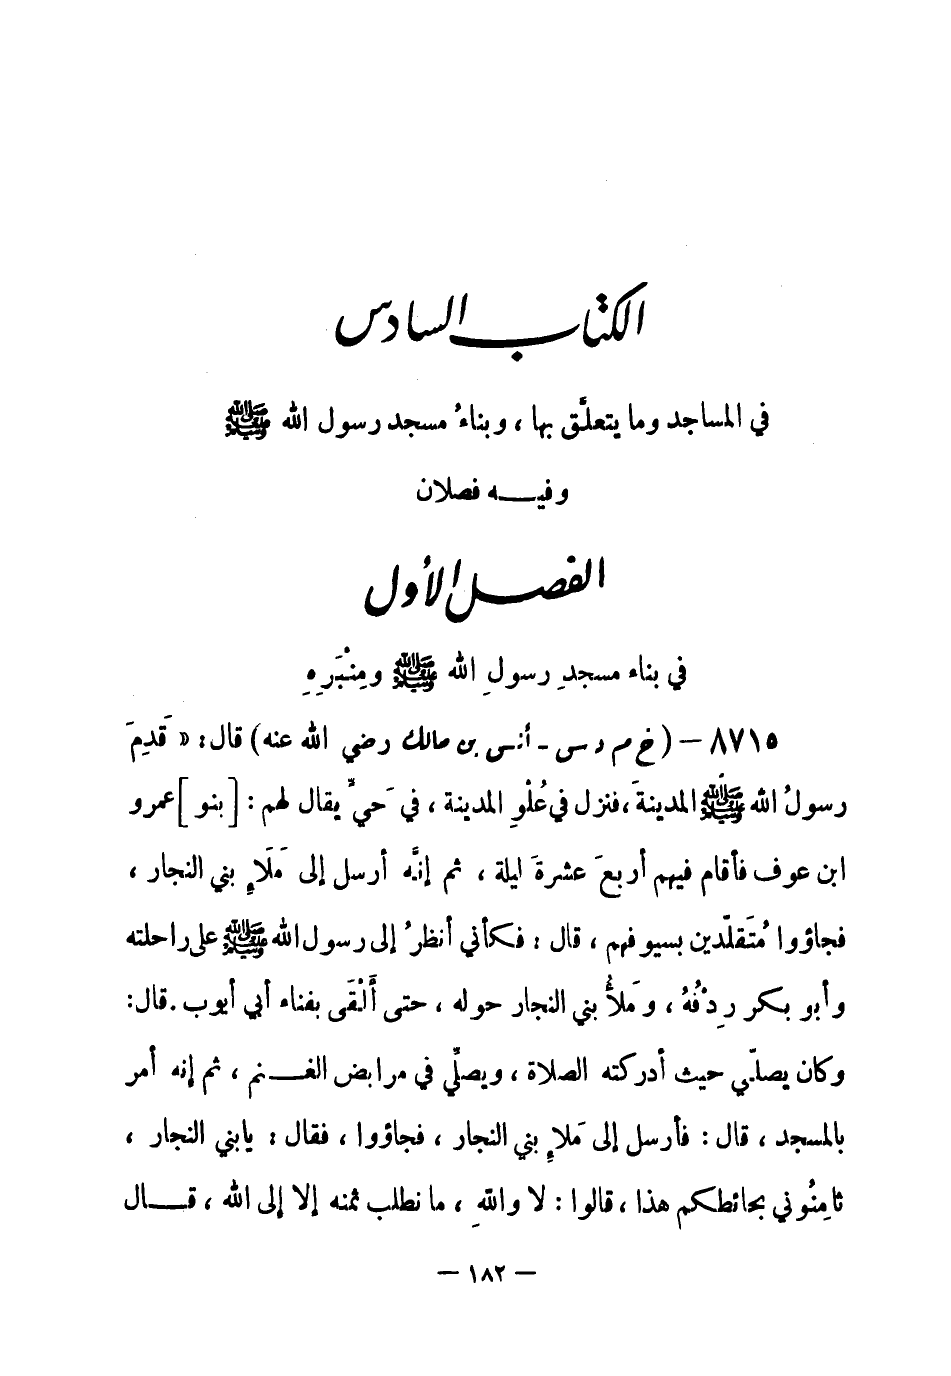 الكتاب السادس
في المساجد وما يتعلَّق بها ، وبناءُ مسجد رسول الله ﷺ
وفيـــه فصلان
الفصل الأول
في بناء مسجدِ رسولِ الله ﷺ ومِنْبَرِهِ
٨٧١٥ – ( خ م د س - أنس بن مالك رضي الله عنه ) قال : « قَدِمَ
رسولُ الله ﷺ المدينةَ ، فنزل في عُلْوِ المدينة ، في حَيٍّ يقال لهم : [ بنو ] عمرو
ابن عوف فأقام فيهم أربعَ عشرةَ ليلة ، ثم إنَّه أرسل إلى مَلَإِ بني النجار ،
فجاؤوا مُتَقلِّدين بسيوفهم ، قال : فكأني أنظرُ إلى رسول الله ﷺ على راحلته
وأبو بكر رِدْفُهُ ، ومَلأُ بني النجار حوله ، حتى أَلْقَى بفناء أبي أيوب . قال :
وكان يصلّي حيث أدركته الصلاة ، ويصلِّي في مرابض الغـــنم ، ثم إنه أمر
بالمسجد ، قال : فأرسل إلى مَلاءِ بني النجار ، فجاؤوا ، فقال : يابني النجار ،
ثامِنُوني بحائطكم هذا ، قالوا : لا واللهِ ، ما نطلب ثمنه إلا إلى الله ، قـــال
– ١٨٢ –